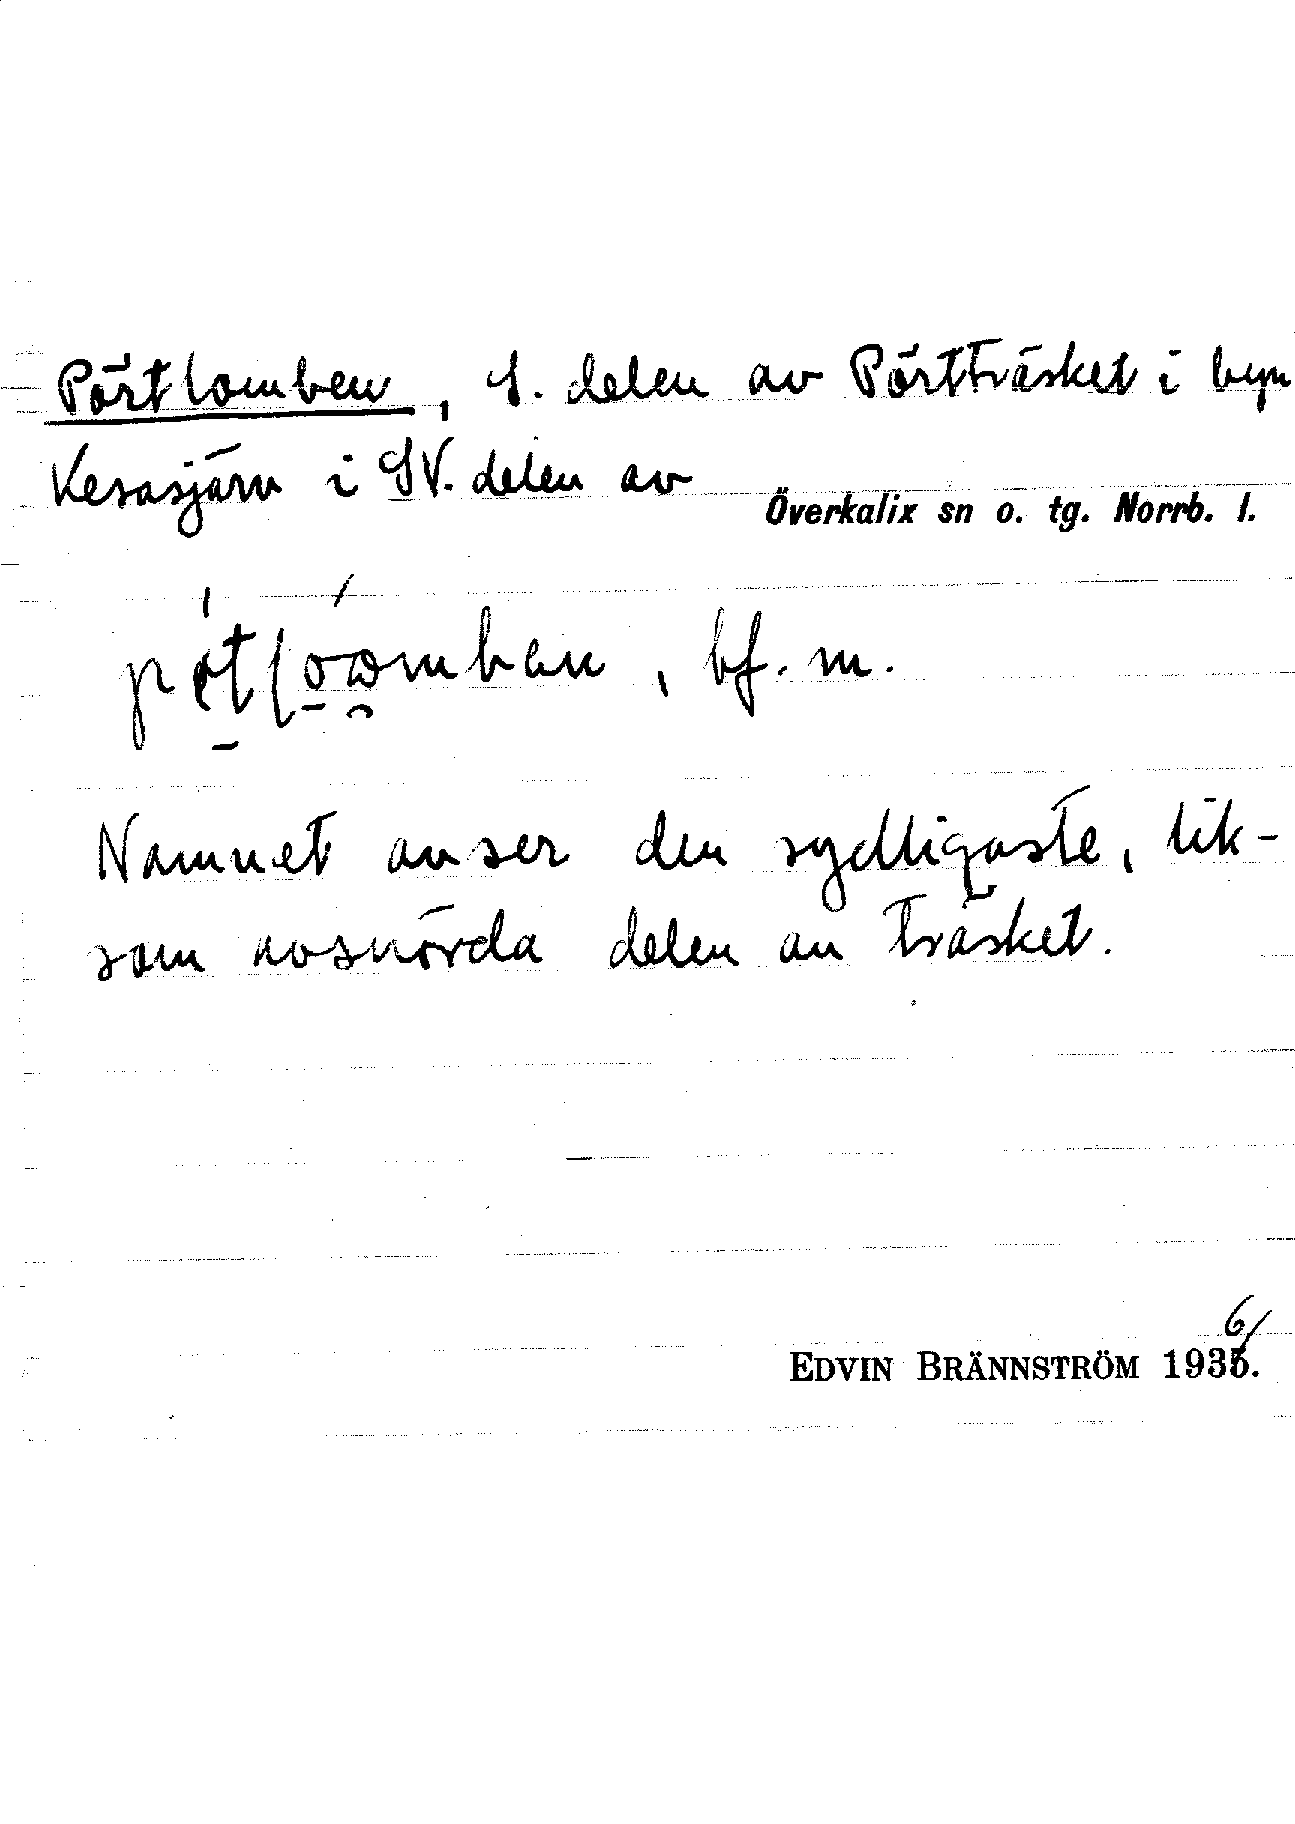 Pörtlomben, S. delen av Pörtträsket i byn
Kesasjärv i SV. delen av
Överkalix sn o. tg. Norrb. l.
, bf. m.
Namnet avser den sydligaste, lik-
som avsnörda delen av träsket.
6/
EDVIN BRÄNNSTRÖM 1935.